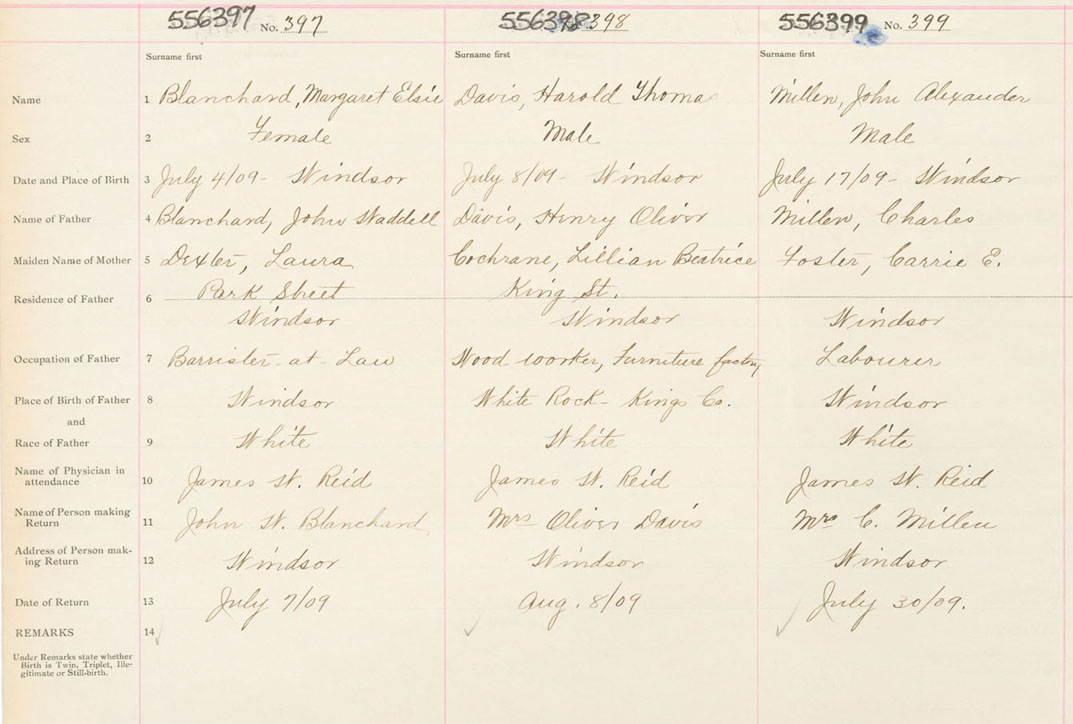 556397 No. 397 556398 No. 398 556399 No. 399
Surname first Surname first Surname first
Name 1 Blanchard, Margaret Elsie Davis, Harold Thomas Millen, John Alexander
Sex 2 Female Male Male
Date and Place of Birth 3 July 4/09 - Windsor July 8/09 - Windsor July 17/09 - Windsor
Name of Father 4 Blanchard, John Waddell Davis, Henry Oliver Millen, Charles
Maiden Name of Mother 5 Dexter, Laura Cochrane, Lillian Beatrice Foster, Carrie E.
Residence of Father 6 Park Street King St.
Windsor Windsor Windsor
Occupation of Father 7 Barrister-at Law Wood worker, Furniture factory Labourer
Place of Birth of Father 8 Windsor White Rock - Kings Co. Windsor
and
Race of Father 9 White White White
Name of Physician in
attendance 10 James W. Reid James W. Reid James W. Reid
Name of Person making
Return 11 John W. Blanchard Mrs Oliver Davis Mrs C. Millen
Address of Person mak-
ing Return 12 Windsor Windsor Windsor
Date of Return 13 July 7/09 Aug. 8/09 July 30/09.
REMARKS 14
Under Remarks state whether
Birth is Twin, Triplet, Ille-
gitimate or Still-birth.